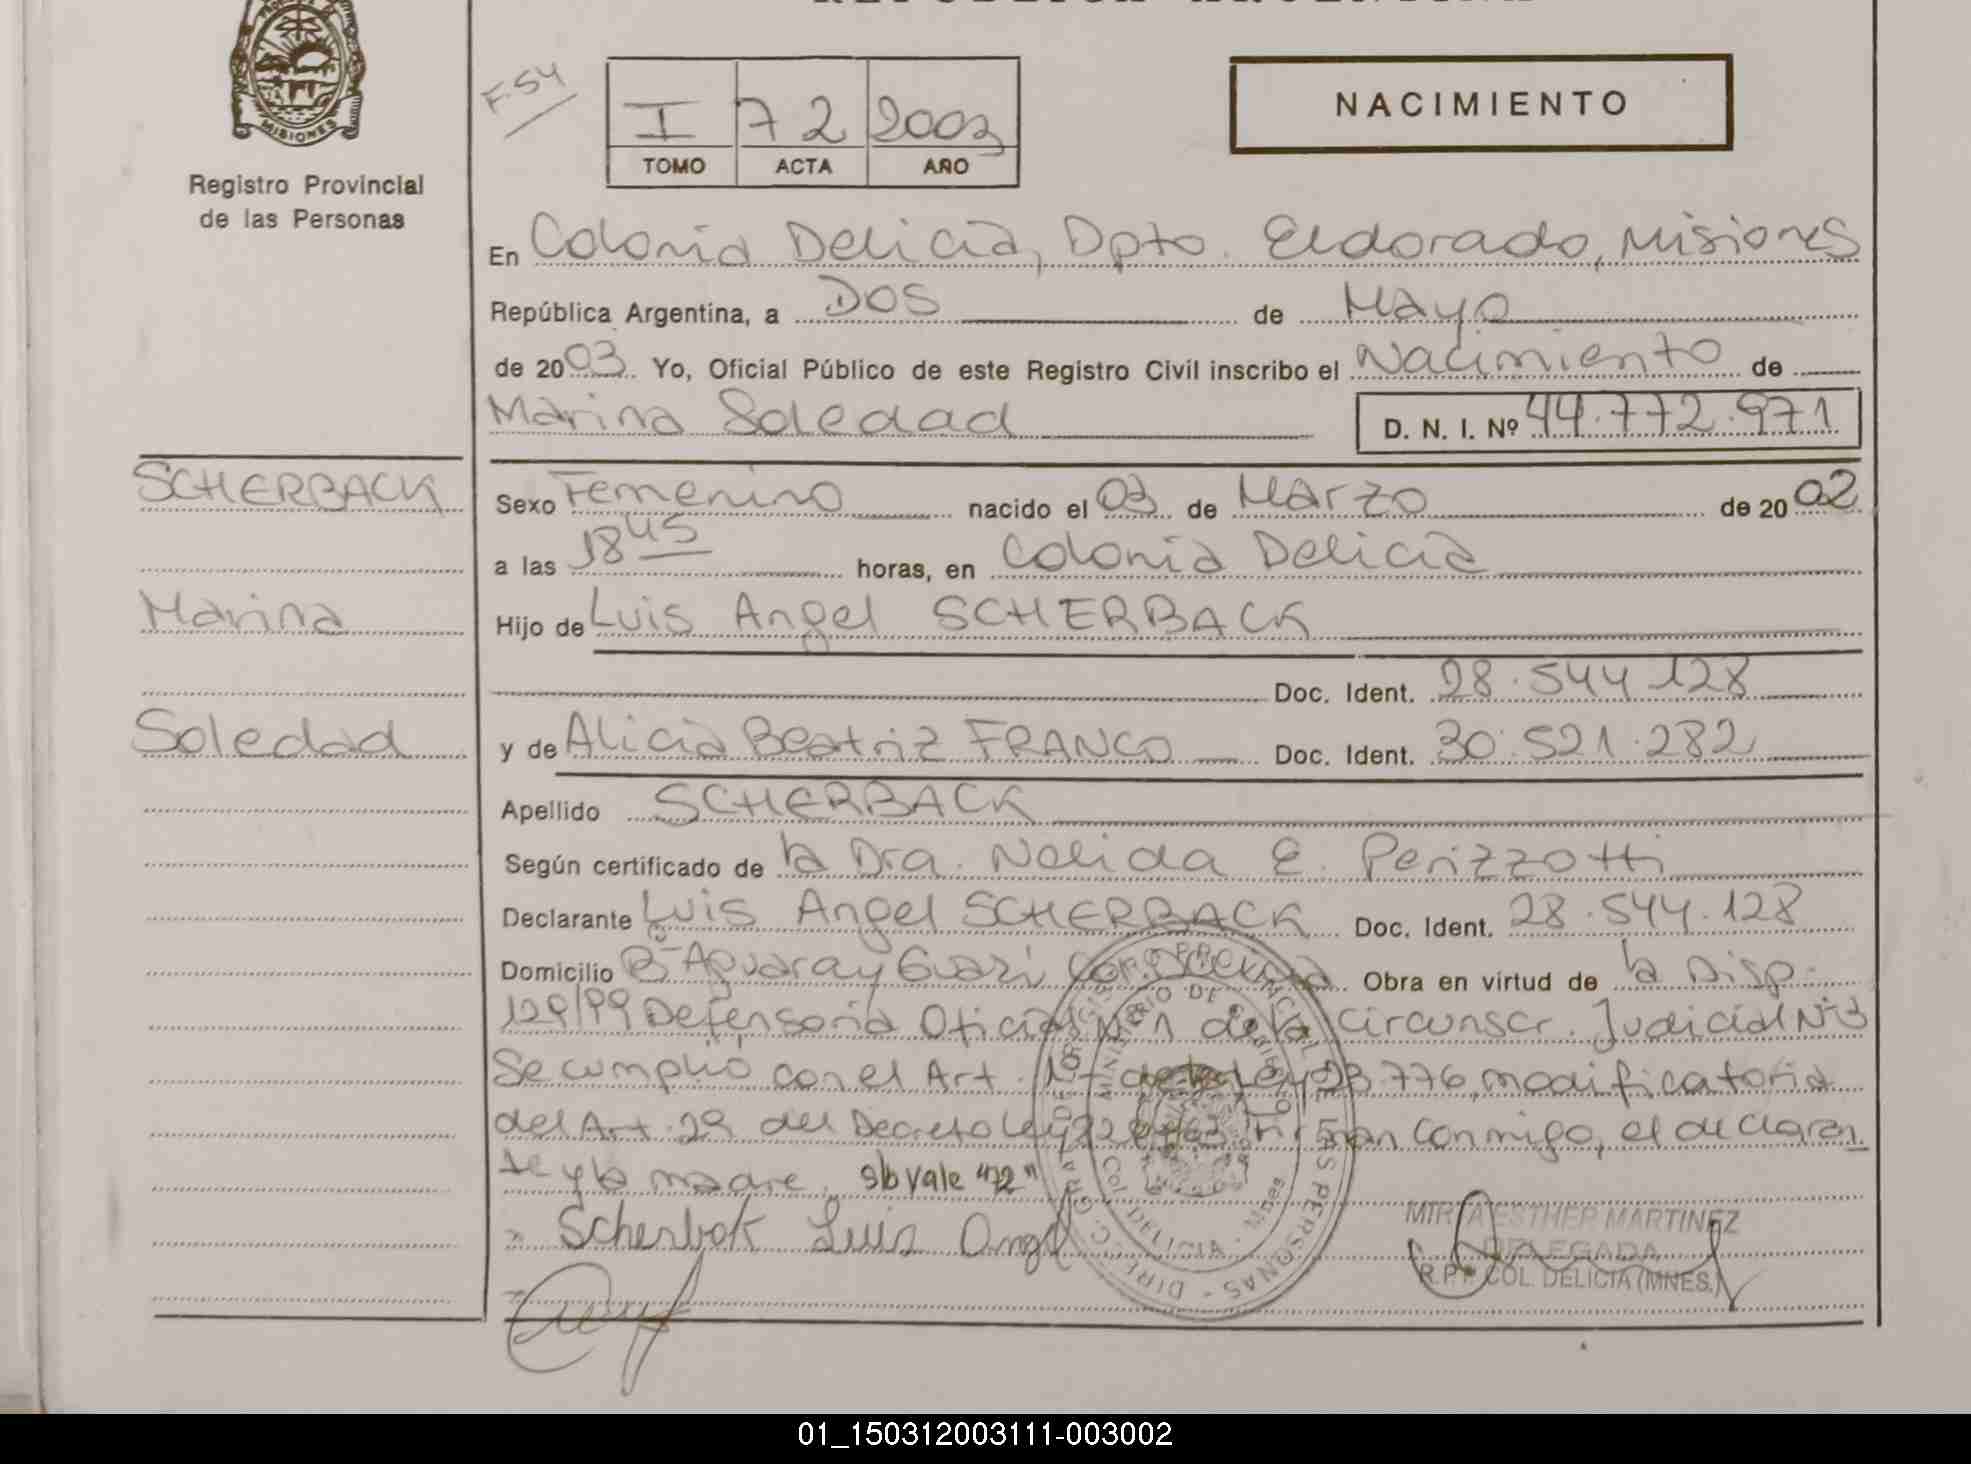 REPUBLICA ARGENTINA
MISIONES
Registro Provincial
de las Personas
F 54
I 72 2003
TOMO ACTA AÑO
NACIMIENTO
En Colonia Delicia, Dpto. Eldorado, Misiones
República Argentina, a DOS de Mayo
de 2003. Yo, Oficial Público de este Registro Civil inscribo el Nacimiento de
Marina Soledad D. N. I. Nº 44.772.971
SCHERBACK
Marina
Soledad
Sexo Femenino nacido el 03 de Marzo de 2002
a las 18 45 horas, en Colonia Delicia
Hijo de Luis Angel SCHERBACK
Doc. Ident. 28.544.128
y de Alicia Beatriz FRANCO Doc. Ident. 30.521.282
Apellido SCHERBACK
Según certificado de la Dra. Nelida E. Perizzotti
Declarante Luis Angel SCHERBACK Doc. Ident. 28.544.128
Domicilio Bº Aguaray Guazú Obra en virtud de la Disp.
129/99 Defensoria Oficial Nº 1 de la Circunscr. Judicial Nº 3
Se cumplió con el Art. 1º de la Ley 23.776, modificatoria
del Art. 29 del Decreto Ley Firman conmigo, el declaran
te y la madre. s/b vale "72"
Scherbak Luis Angel
MIRTA ESTHER MARTINEZ
DELEGADA
R.P.P. COL. DELICIA (MNES.)
MINISTERIO DE GOBIERNO
COL. DELICIA - Mnes
01_150312003111-003002